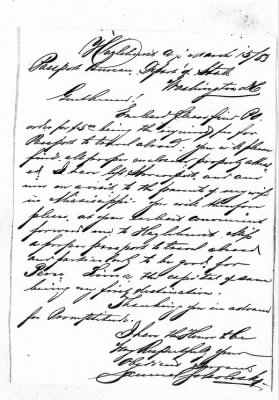 Hazlehurst March 15/83
Passport Bureau, Dept of State
Washington
Gentlemen!
Enclosed please find P.O.
order for $5 being the required fee for
Passport to travel abroad. You will please
find all proper enclosures properly attest-
ed. I have left and am
now on a visit, to the parents of my wife
in Mississippi. You will therefore
please, at your earliest convenience
forward one to Hazlehurst Miss
a proper passport to travel abroad
and particularly to be good for
Peru Lima, the capital of same
being my first destination.
Thanking you in advance
for promptitude.
I have the Honor to be
Very Respectfully Your
Obedient Servant